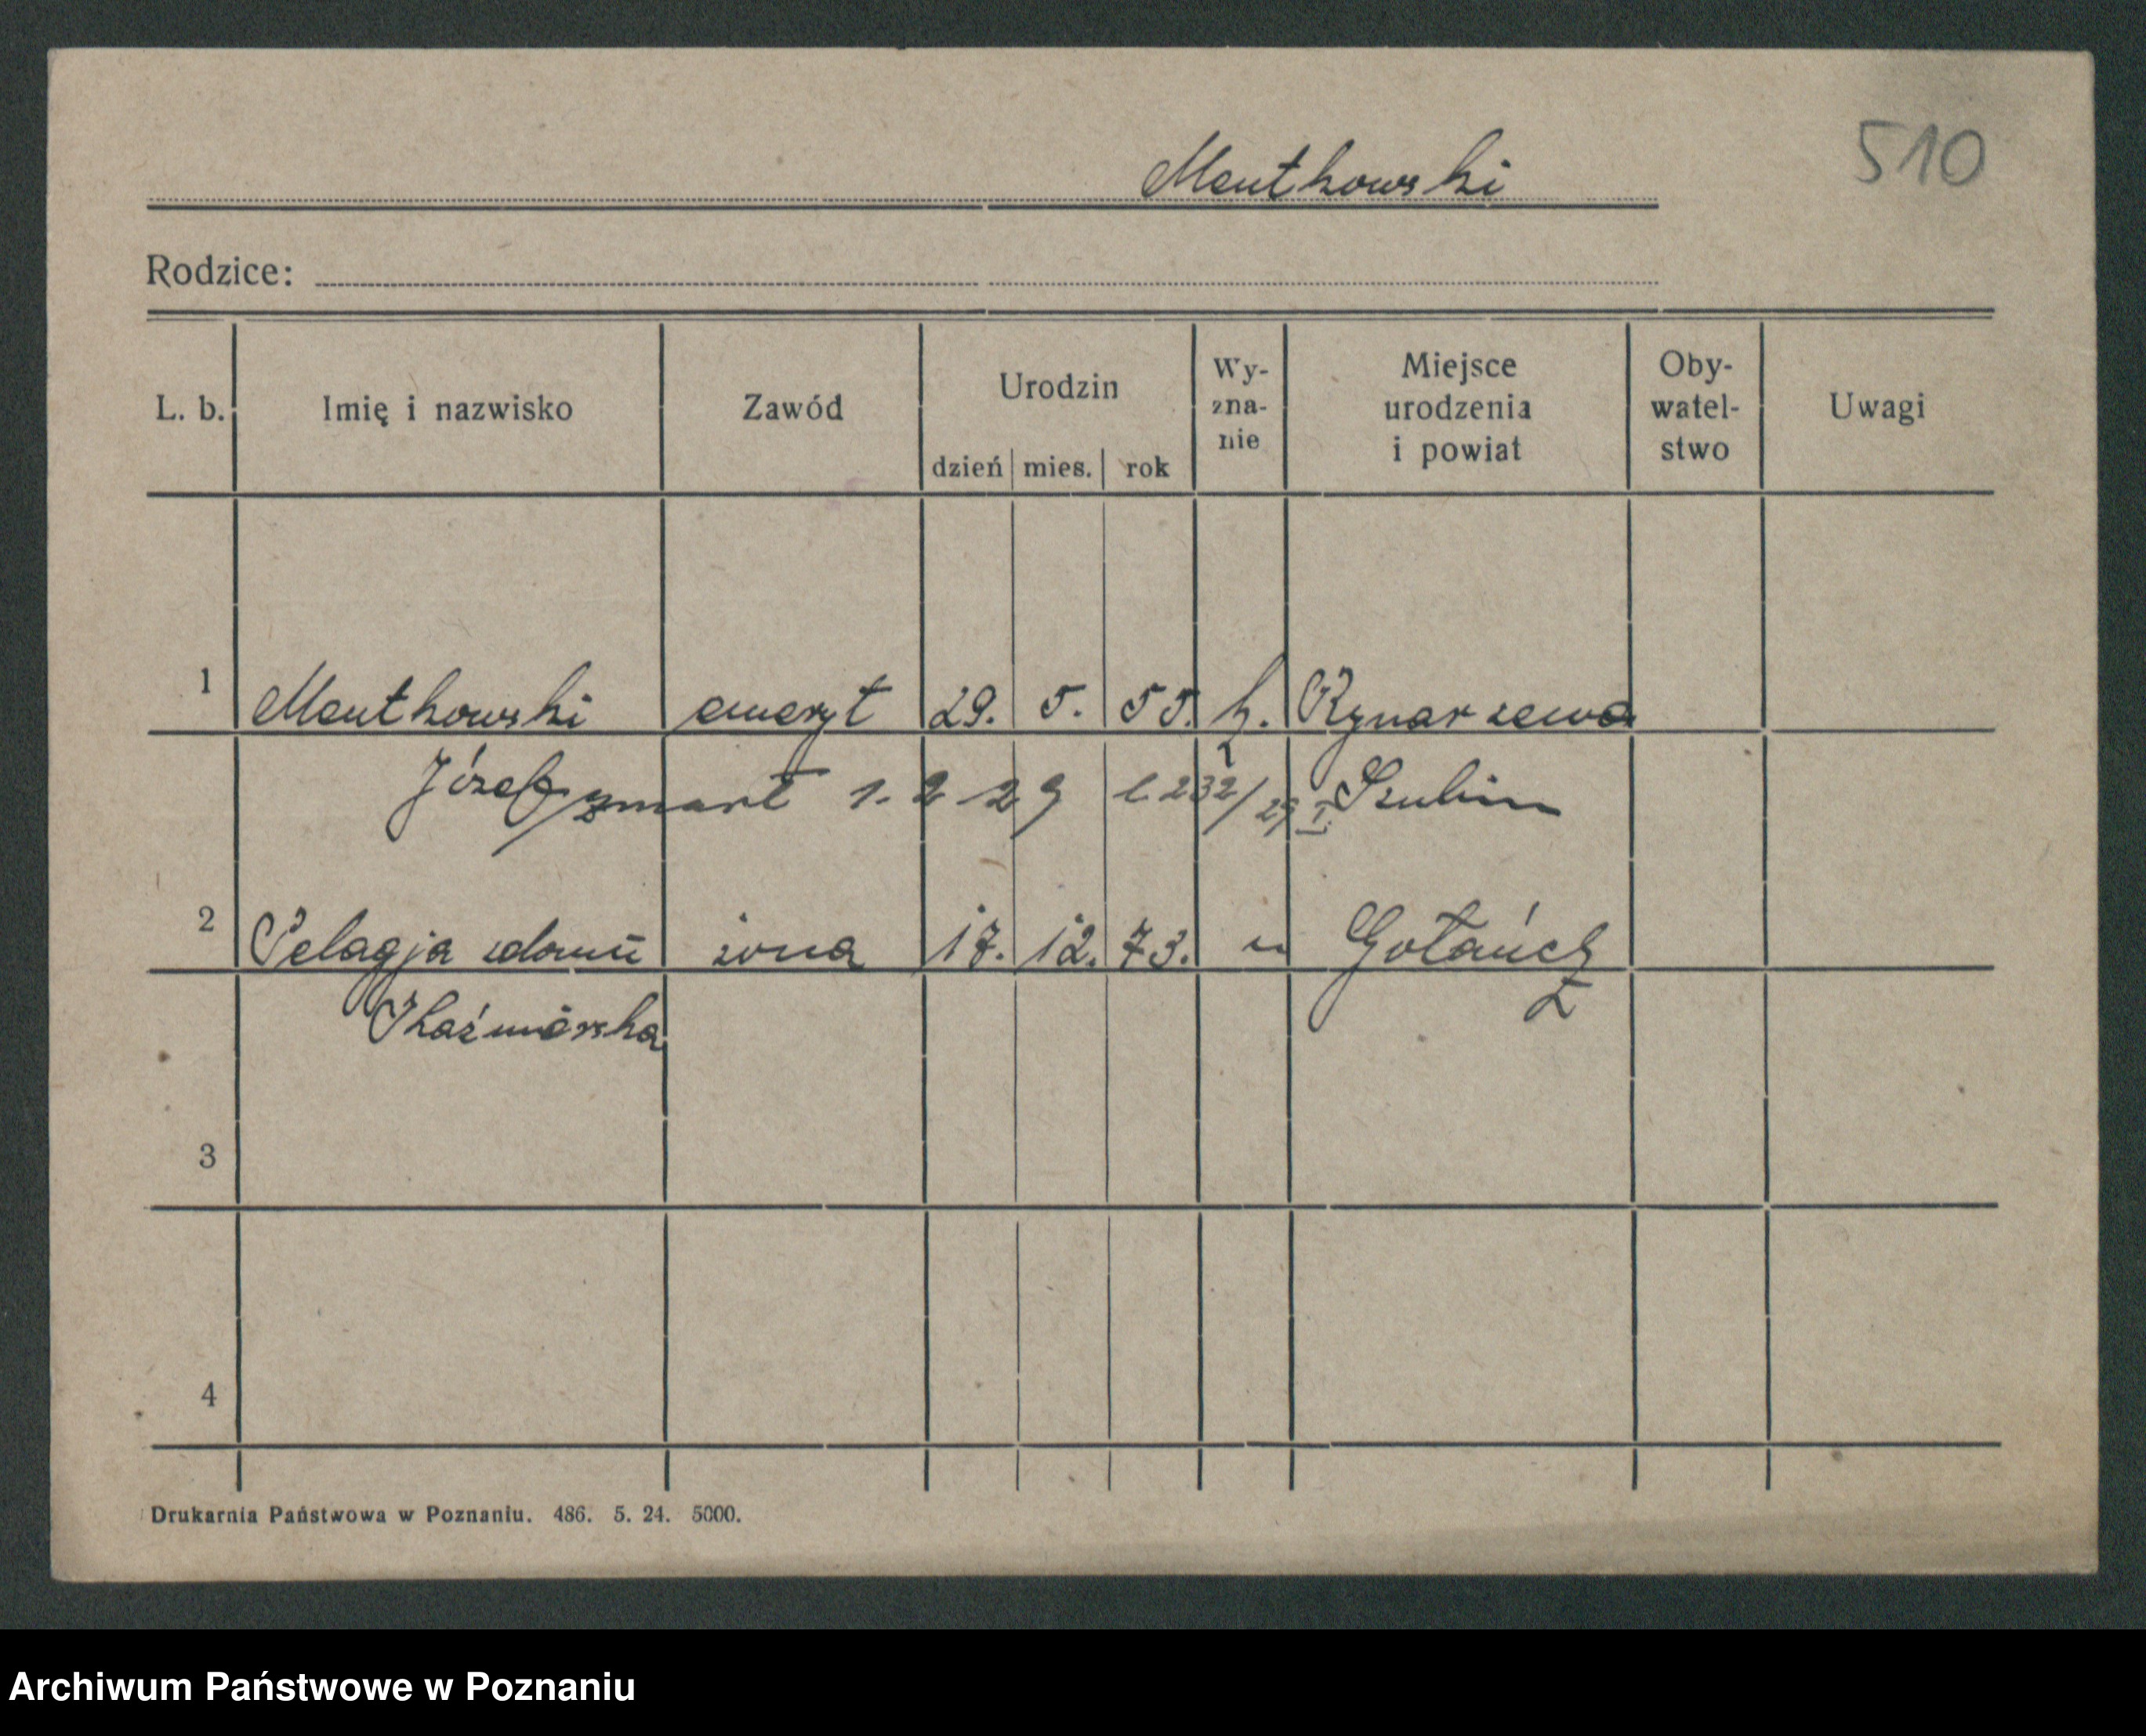 510
Mentkowski
Rodzice:
L. b. Imię i nazwisko Zawód Urodzin dzień mies. rok Wy- zna- nie Miejsce urodzenia i powiat Oby- watel- stwo Uwagi
1 Mentkowski emeryt 29. 5. 55. k. Rynarzewo
Józef zmarł 1. 2 29 l. 232/29 I. Szubin
2 Pelagja zdomu żona 17. 12. 73. " Gołańcz
Kaźmierska
3
4
Drukarnia Państwowa w Poznaniu. 486. 5. 24. 5000.
Archiwum Państwowe w Poznaniu